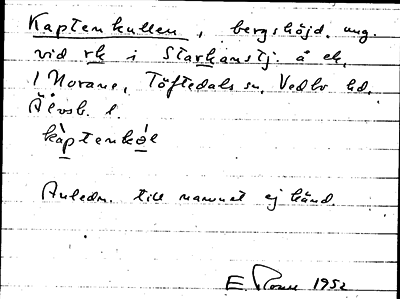 Kaptenkullen, bergshöjd. ung.
vid rk i Starkanstj. å ek.
1 Norane, Töftedals sn, Vedbo hd.
Älvsb. l.
kàptenkól
Anledn. till namnet ej känd.
E. 1952